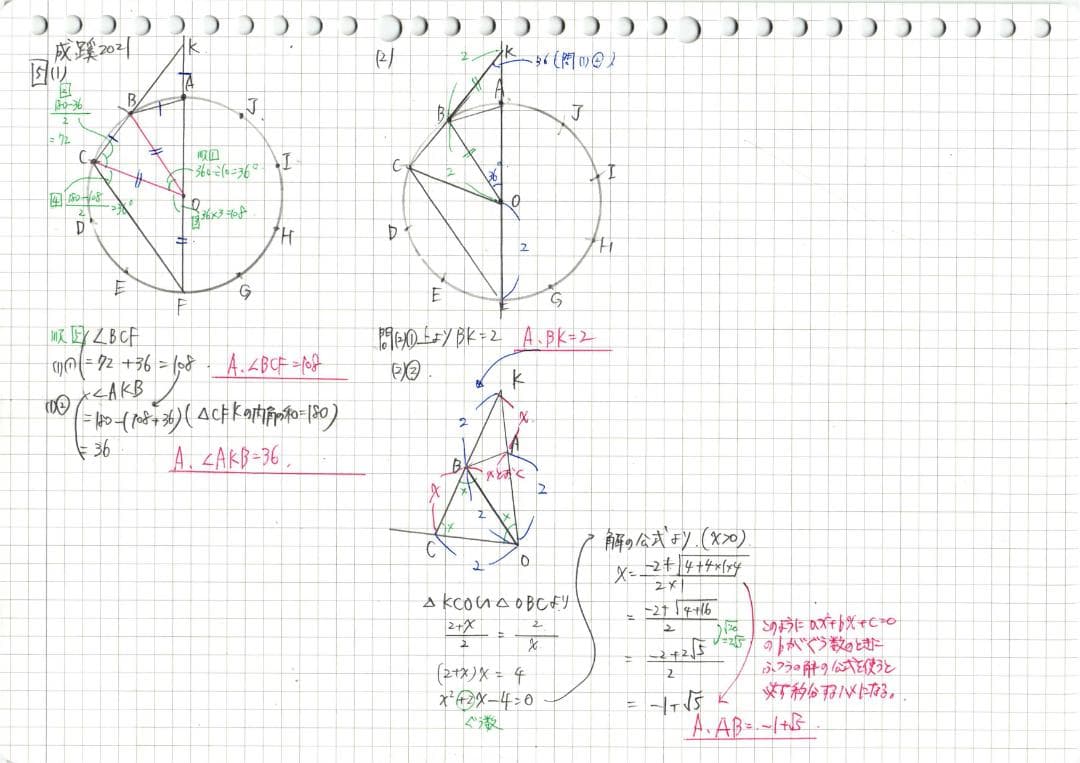 成蹊2021
5 (1)
K
A
B
J
I
C
O
D
H
E
G
F
2
180-36
2
=72
順1
360÷10=36°
3 36×3=108
4 180-108
2
=36°
順5 ∠BCF
(1)① =72+36=108.
A.∠BCF=108
(1)② ∠AKB
=180-(108+36)(△CFKの内角の和=180)
=36
A.∠AKB=36.
(2)
K
36(問(1)②)
2
A
B
J
C
I
36°
2
O
D
2
H
E
G
F
問(2)①上よりBK=2
A.BK=2
(2)②.
K
2
x
A
B
xとおく
x
2
2
C
2
O
△KCO∽△OBCより
2+x
2
=
2
x
(2+x)x=4
x²+2x-4=0
ぐう数
解の公式より.(x>0)
x=
-2+√4+4×1×4
2×1
=
-2+√4+16
2
√20
=2√5
=
-2+2√5
2
=-1+√5
A.AB=-1+√5.
このようにax²+bx+c=0
のbがぐう数のときに
ふつうの解の公式を使うと
必ず約分するハメになる。